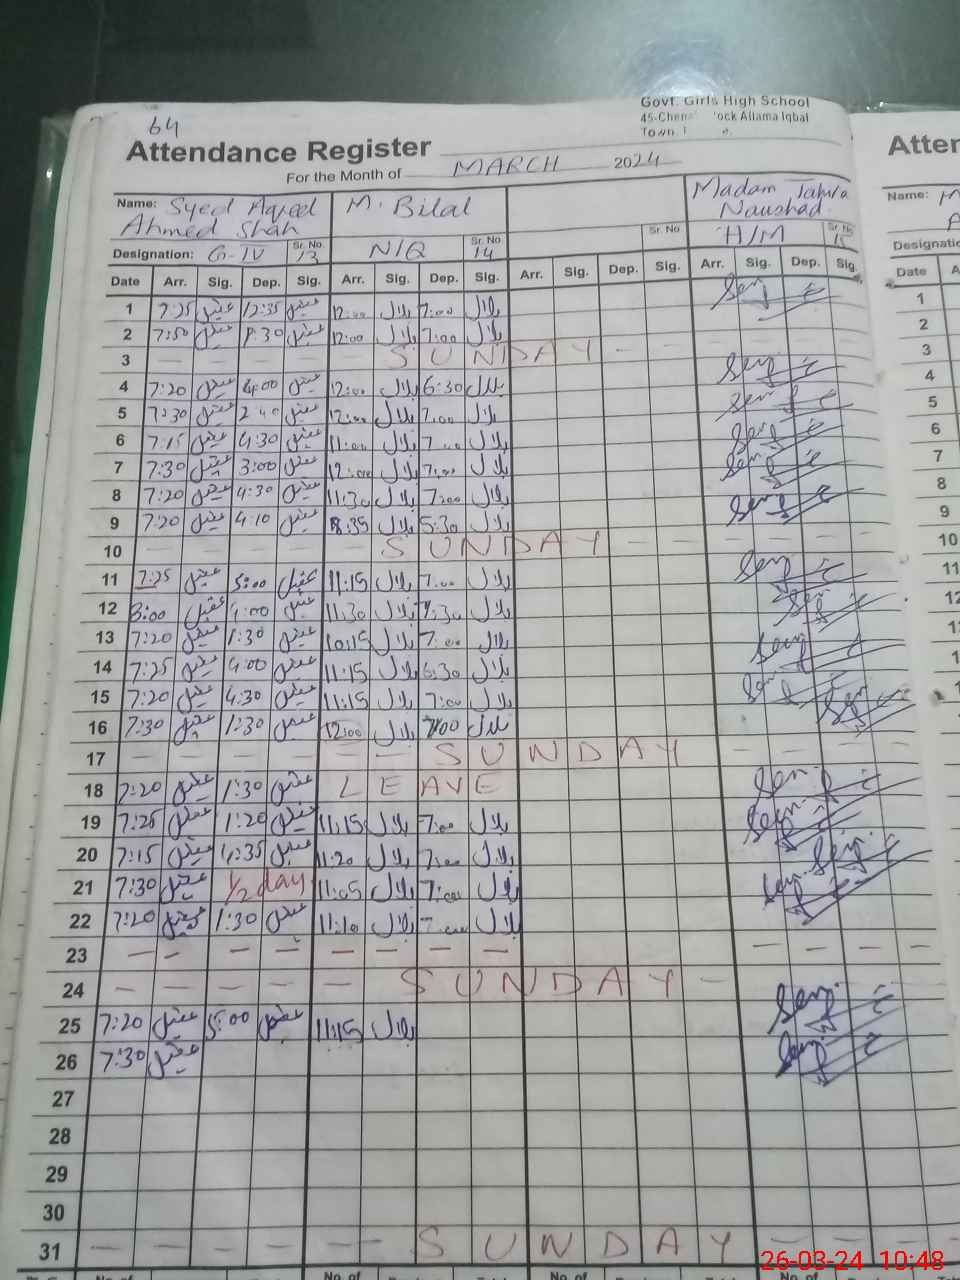 Govt. Girls High School
45-Chena ock Allama Iqbal
Town
64
Attendance Register
For the Month of MARCH 2024
Name: Syed Aqeel Ahmed Shah M. Bilal Madam Tahira Naushad
Designation: G-IV Sr. No. 13 N/Q Sr. No. 14 Sr. No. H/M Sr. No. 15
Date Arr. Sig. Dep. Sig. Arr. Sig. Dep. Sig. Arr. Sig. Dep. Sig. Arr. Sig. Dep. Sig.
1 7:25 عقیل 12:35 عقیل 12:00 بلال 7:00 بلال
2 7:50 عقیل 1:30 عقیل 12:00 بلال 7:00 بلال
3 — — — — — SUNDAY — — —
4 7:20 عقیل 4:00 عقیل 12:00 بلال 6:30 بلال
5 7:30 عقیل 2:40 عقیل 12:00 بلال 7:00 بلال
6 7:15 عقیل 4:30 عقیل 11:00 بلال 7:00 بلال
7 7:30 عقیل 3:00 عقیل 12:00 بلال 7:00 بلال
8 7:20 عقیل 4:30 عقیل 11:30 بلال 7:00 بلال
9 7:20 عقیل 4:10 عقیل 8:35 بلال 5:30 بلال
10 — — — — — SUNDAY — — —
11 7:25 عقیل 5:00 عقیل 11:15 بلال 7:00 بلال
12 8:00 عقیل 4:00 عقیل 11:30 بلال 7:30 بلال
13 7:20 عقیل 1:30 عقیل 10:15 بلال 7:00 بلال
14 7:25 عقیل 4:00 عقیل 11:15 بلال 6:30 بلال
15 7:20 عقیل 4:30 عقیل 11:15 بلال 7:00 بلال
16 7:30 عقیل 1:30 عقیل 12:00 بلال 7:00 بلال
17 — — — — — — SUNDAY — — — —
18 7:20 عقیل 1:30 عقیل LEAVE
19 7:25 عقیل 1:20 عقیل 11:15 بلال 7:00 بلال
20 7:15 عقیل 4:35 عقیل 11:20 بلال 7:00 بلال
21 7:30 عقیل 1/2 day 11:05 بلال 7:00 بلال
22 7:20 عقیل 1:30 عقیل 11:10 بلال 7:00 بلال
23 — — — — — — — —
24 — — — — — SUNDAY —
25 7:20 عقیل 5:00 عقیل 11:15 بلال
26 7:30 عقیل
27
28
29
30
31 — — — — — — SUNDAY
Atten
Name:
Designatio
Date A
1
2
3
4
5
6
7
8
9
10
11
12
26-03-24 10:48